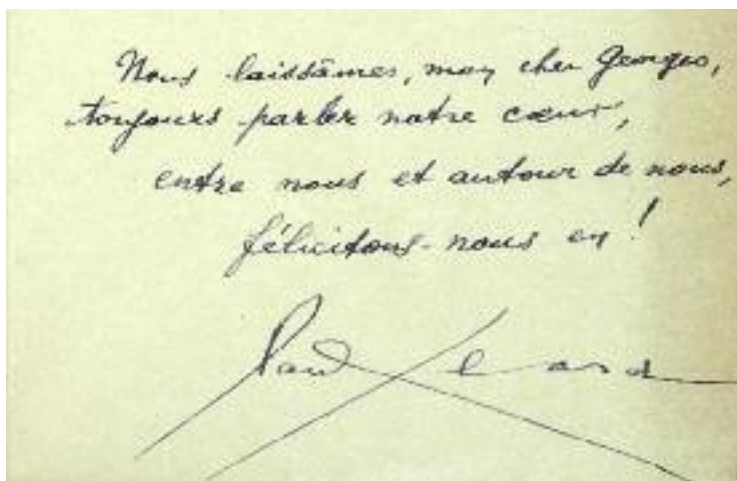 Nous laissâmes, mon cher Georges,
toujours parler notre cœur,
entre nous et autour de nous,
félicitons-nous en !
Paul